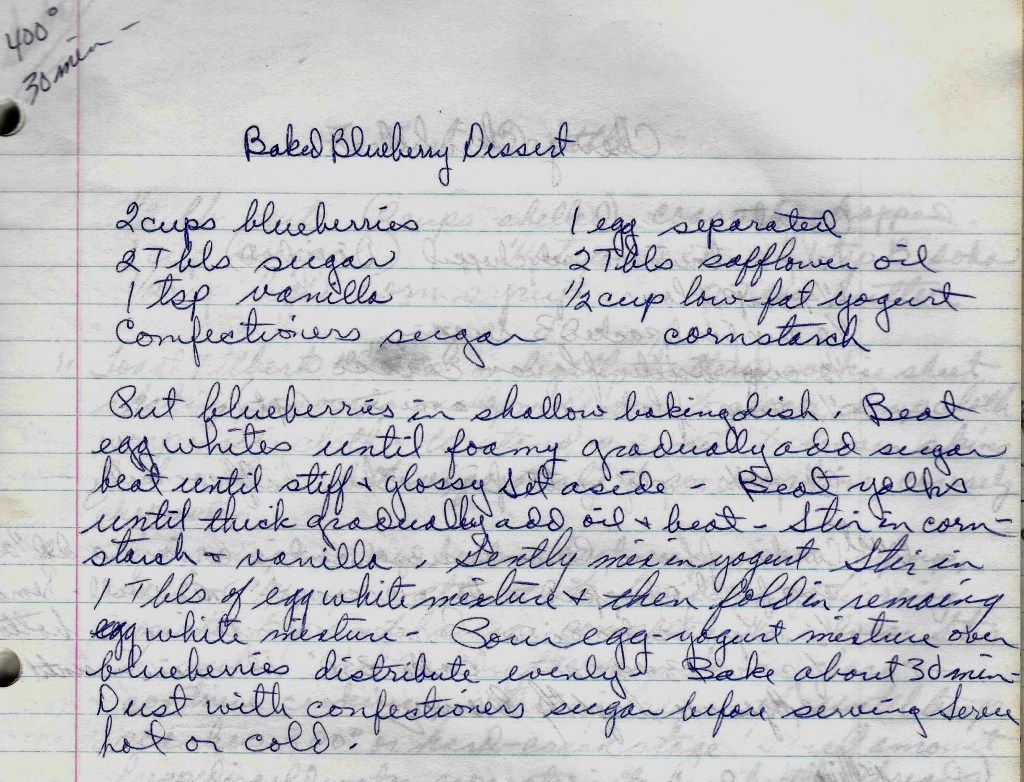 400°
30 min -
Baked Blueberry Dessert
2 cups blueberries 1 egg separated
2 Tbls sugar 2 Tbls safflower oil
1 tsp vanilla 1/2 cup low-fat yogurt
Confectioners sugar cornstarch
Put blueberries in shallow baking dish. Beat
egg whites until foamy gradually add sugar
beat until stiff + glossy Set aside - Beat yolks
until thick gradually add oil + beat - Stir in corn-
starch + vanilla. Gently mix in yogurt Stir in
1 Tbls of egg white mixture + then fold in remaing
egg white mixture - Pour egg-yogurt mixture over
blueberries distribute evenly. Bake about 30 min-
Dust with confectioners sugar before serving Serve
hot or cold.